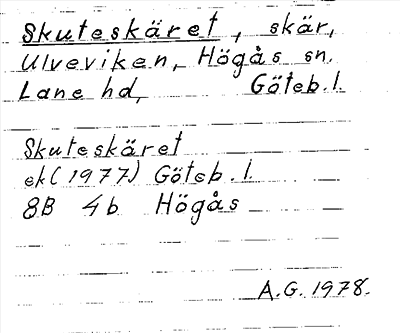 Skuteskäret, skär,
Ulveviken, Högås sn.
Lane hd, Göteb.l.
Skuteskäret
ek(1977) Göteb.l.
8B 4b Högås
A.G. 1978.